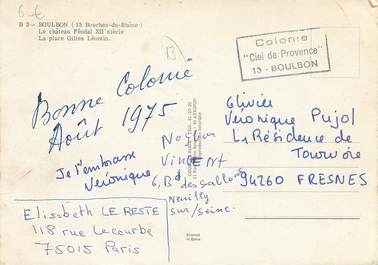 B 3 - BOULBON (13 Bouches-du-Rhône)
Le château Féodal XIIe siècle
La place Gilles Léontin.
Colonie
"Ciel de Provence"
13 - BOULBON
Bonne Colonie
Août 1975
Je t'embrasse
Véronique
VINCENT
6, Bd des Sablons
Neuilly
sur/seine.
Elisabeth LE RESTE
118 rue Lecourbe
75015 Paris
Olivier
Véronique Pujol
La Résidence de
94260 FRESNES